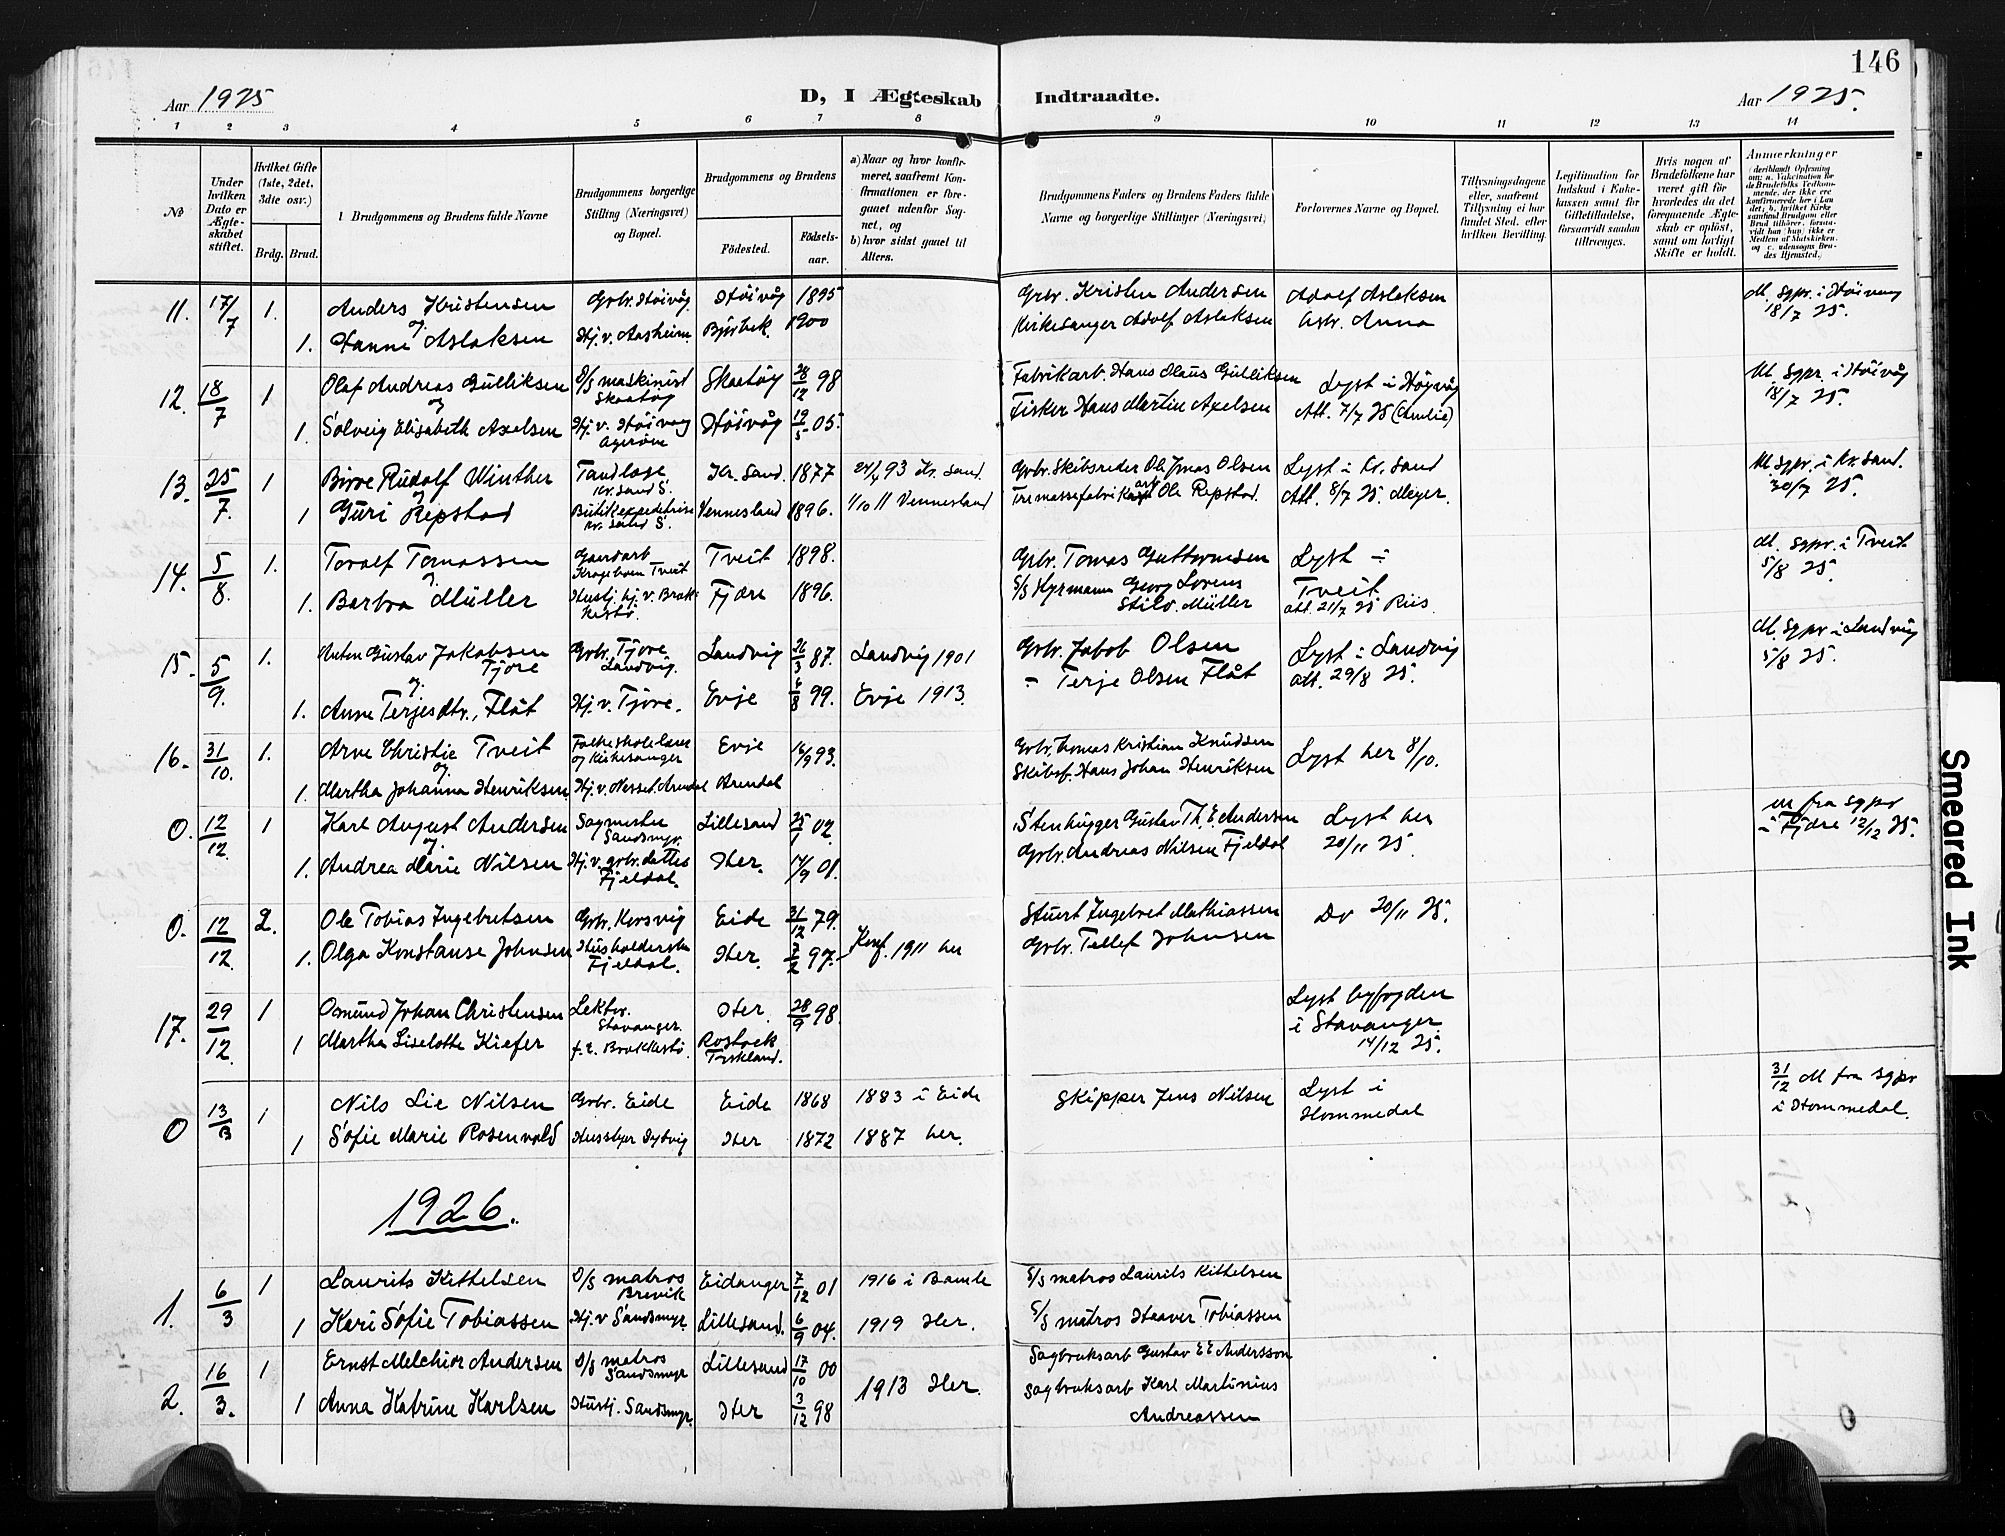 146
Aar 1925 D, I Ægteskab Indtraadte. Aar 1925.
1 2 3 4 5 6 7 8 9 10 11 12 13 14
No
Under hvilken Dato er Ægteskabet stiftet.
Hvilket Gifte (1ste, 2det, 3dte osv.)
Brdg. Brud.
Brudgommens og Brudens fulde Navne
Brudgommens borgerlige Stilling (Næringsvei) og Bopæl.
Brudgommens og Brudens
Födested.
Födselsaar.
a) Naar og hvor konfirmeret, saafremt Konfirmationen er foregaaet udenfor Sognet, og
b) hvor sidst gaaet til Alters.
Brudgommens Faders og Brudens Faders fulde Navne og borgerlige Stillinger (Næringsvei)
Forlovernes Navne og Bopæl.
Tillysningsdagene eller, saafremt Tillysning ei har fundet Sted, efter hvilken Bevilling.
Legitimation for Indskud i Enkekassen samt for Giftetilladelse, forsaavidt saadan tiltrænges.
Hvis nogen af Brudefolkene har været gift før hvorledes da det foregaaende Ægteskab er opløst, samt om lovligt Skifte er holdt.
Anmerkninger
(deriblandt Oplysning om: a. Vakcination for de Brudefolks Vedkommende, der ikke ere konfirmerede her i Landet; b. hvilket Kirkesamfund Brudgom eller Brud tilhörer, forsaavidt han (hun) ikke er Medlem af Statskirken, og c. udensogns Brudes Hjemsted.)
11. 17/7 1. Anders Kristensen Grbr. Höivåg Höivåg 1895 Grbr. Kristen Andersen Adolf Aslaksen M. sgpr. i Höivaag
og 18/7 25.
1. Hanne Aslaksen Hj. v. Aasheim Björbek 1900 Kirkesanger Adolf Aslaksen Anna
12. 18/7 1 Olaf Andreas Gulliksen D/S maskinist Skaatöy Skaatöy 28/12 98 Fabrikarb. Hans Olaus Gulliksen Lyst i Høyvåg M. sgpr. i Höivåg
og Att. 7/7 25 18/7 25.
1. Solveig Elisabeth Axelsen Hj. v. Höivaag Ageröen Höivåg 19/5 05. Fisker Hans Martin Axelsen
13. 25/7. 1 Rudolf Winther Tandlæge Kr. Sand S. Kr. Sand. 1877 24/4 93 Kr. Sand. Grbr. Skibsreder Ole Jonas Olsen Lyst i Kr. Sand M. sgpr. i Kr. Sand.
og 30/7 25.
1 Guri Repstad Butikexpeditrise Kr. Sand S. Vennesland 1896. 1/10 11 Vennesland Tremassefabrikarb. Ole Repstad. Att. 8/7 25 Meyer.
14. 5/8. 1. Toralf Tomassen Gaardarb. Tveit Tveit 1898. Grbr. Tomas Guttormsen Lyst i M. sgpr. i Tveit
og Tveit 5/8 25.
1. Barbra Müller Hustj. hj. v. Brekkestö Fjære 1896. S/S Styrmann Georg Lorens Müller att. 21/7 25 Riis.
15. 5/9. 1. Anten Gustav Jakobsen Tjore Grbr. Tjore Landvig. Landvig 26/3 87. Landvig 1901 Grbr. Jakob Olsen Lyst i Landvig M. sgpr i Landvig
og att. 29/8 25. 5/8 25.
1. Anne Terjesdtr., Flåt Hj. v. Tjore. Evje 4/8 99. Evje 1913. - Terje Olsen Flåt
16. 31/10. 1. Arve Christie Tveit Folkeskolelærer og Kirkesanger Evje 16/9 93. Grbr. Tomas Kristian Knudsen Lyst her 8/10.
og
1. Martha Johanna Henriksen Hj. v. Nesset Arendal Arendal Skibsf. Hans Johan Henriksen
0. 12/12. 1 Karl August Andersen Sagmester Sandsmyr. Lillesand 25/1 02. Stenhugger Gustav Th. E. Andersen Lyst her m fra sgpr
og 20/11 25. i Fjære 12/12 25.
1. Andrea Marie Nilsen Hj. v. grbr. datter Fjeldal. Her. 14/9 01. Grbr. Andreas Nilsen Fjeldal
0. 12/12. 2. Ole Tobias Ingebretsen Grbr. Korsvig Eide 31/12 79. Stuert Ingebret Mathiassen Do 20/11 25.
1. Olga Konstanse Johnsen Husholderske Fjeldal. Her. 7/2 97. Konf. 1911 her Grbr. Tellef Johnsen
17. 29/12. 1 Osmund Johan Christensen Lektor. Stavanger. Her. 28/9 98. Lyst byfogden
i Stavanger
14/12 25.
1 Martha Liselotte Kiefer f. t. Brekkestö. Rostock Tyskland.
0 13/3 1 Nils Lie Nilsen Grbr. Eide Eide 1868 1883 i Eide Skipper Jens Nilsen Lyst i Hommedal 31/12 M fra sgpr
i Hommedal.
1 Sofie Marie Rosenvold Husstyr Dybvig Her 1872 1887 her.
1926.
1. 6/3 1 Laurits Kittelsen D/S matros Brevik Eidanger 7/12 01 1916 i Bamle S/S matros Laurits Kittelsen
1 Kari Sofie Tobiassen Hj. v Sandsmyr. Lillesand. 6/9 04. 1919 Her. S/S matros Haaver Tobiassen
2. 16/3. 1 Ernst Melchior Andersen D/S matros Sandsmyr Lillesand 17/10 00 Sagbruksarb Gustav E E Andersson
1 Anna Katrine Karlsen Hustj. Sandsmyr. Her 3/12 98 1913 Her. Sagbruksarb Karl Martinius
Andreassen
0
Smeared Ink